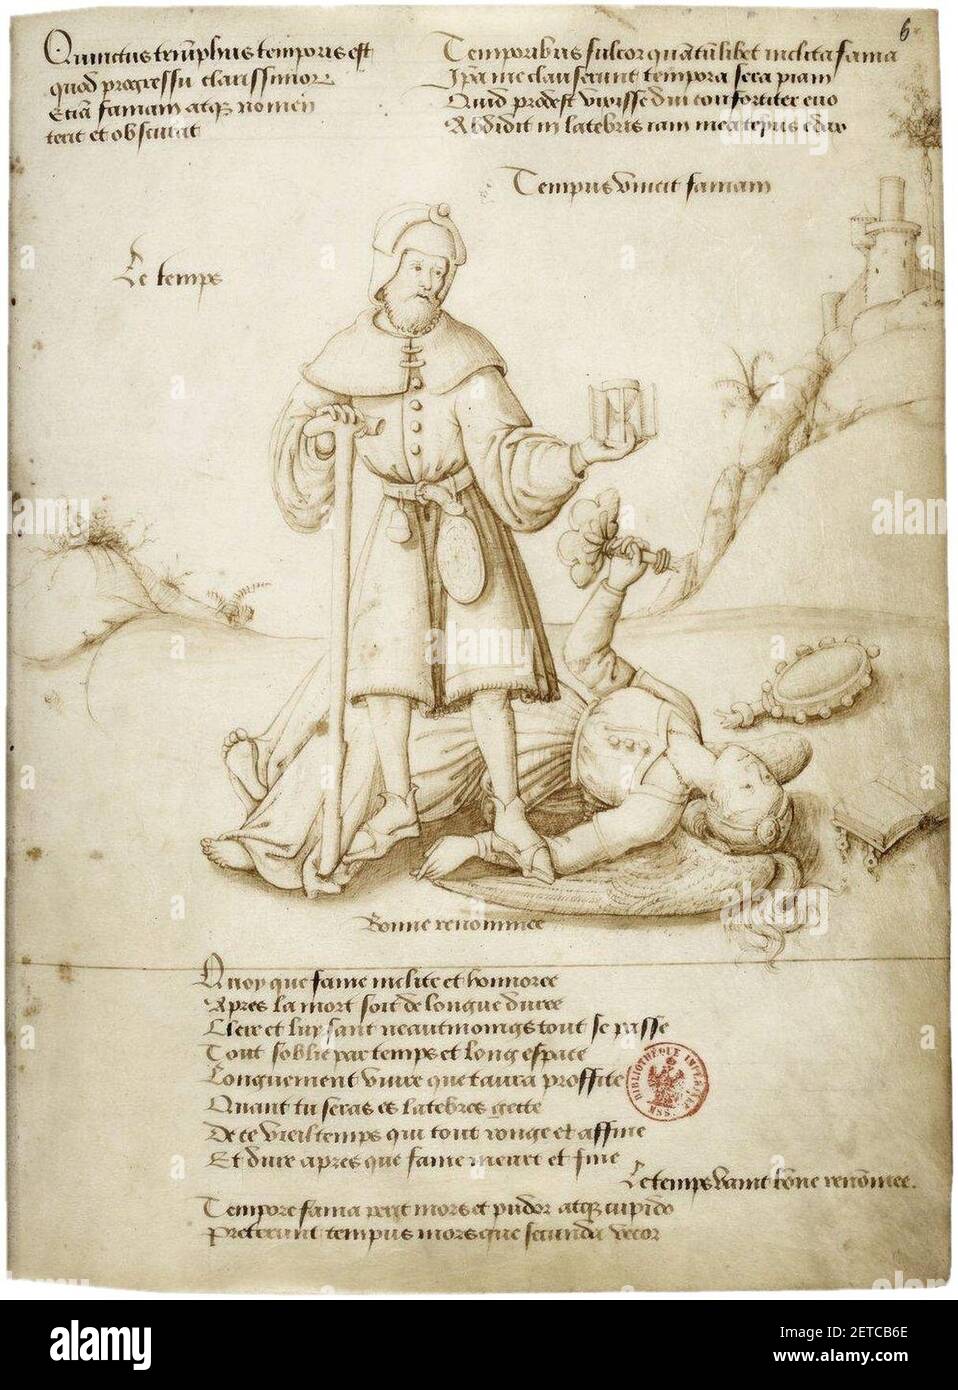 6
Quintus triūphus temporis est
quod progressu clarissimor
Etiā famam atqz nomen
terit et obscurat
Temporibus fulcor quātūlibet inclita fama
Ipa me clauserunt tempora sera piam
Quid prodest vixisse diu cōn fortiter euo
Abdidit in latebris iam mea tēpus edax
Tempus vincit famam
Le temps
Bonne renommee
Quoy que fame inclite et honnoree
Apres la mort soit de longue duree
Clere et luysant neautmoings tout se passe
Tout soblie par temps et long espace
Longuement viure que taura proffite
Quant tu seras es latebres gette
De ce vieil temps qui tout ronge et affine
Et dure apres que fame meurt et fine
Le temps vainct bōne renōmee.
Tempore fama perit mors et pudor atqz cupido
Pretereunt tempus morsque secunda decor
BIBLIOTHÈQUE IMPÉRIALE MSS.
alamy
alamy
Image ID: 2ETCB6E
www.alamy.com